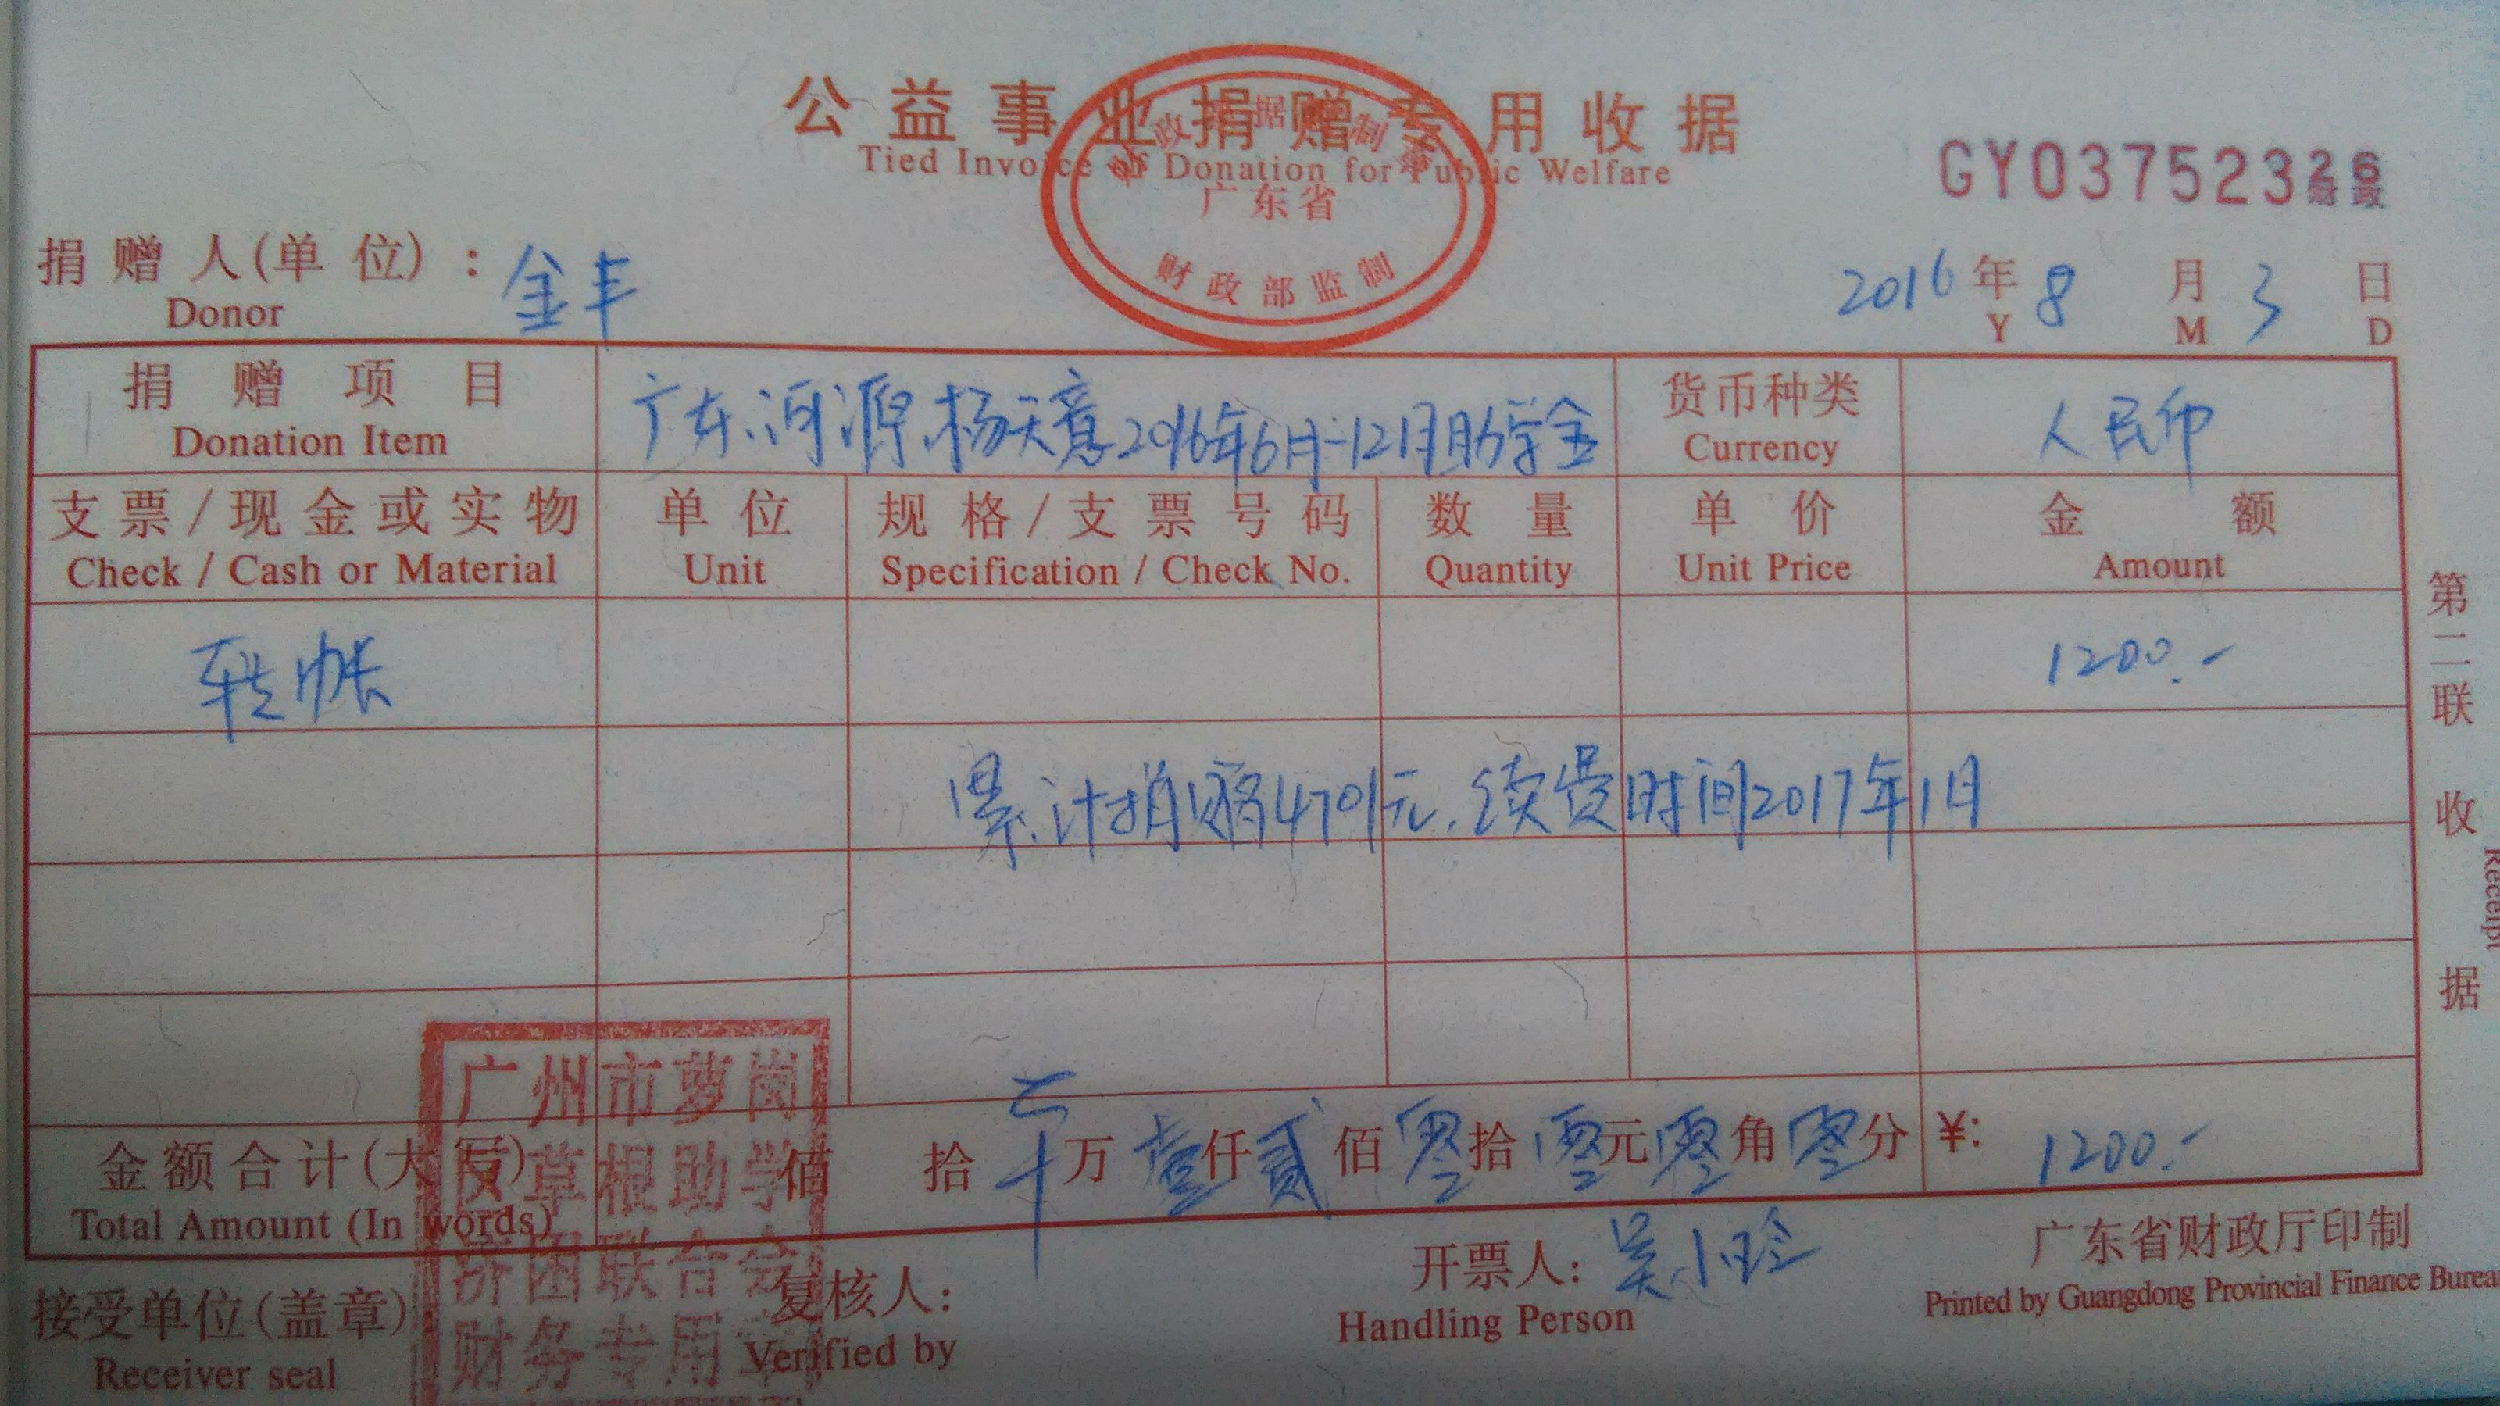 公益事业捐赠专用收据
Tied Invoice of Donation for Public Welfare
广东省
财政部监制
GY03752326
财政
捐赠人(单位)：金丰
Donor
2016年8月3日
Y M D
捐赠项目 广东河源杨天意2016年6月-12月助学金 货币种类 人民币
Donation Item Currency
支票/现金或实物 单位 规格/支票号码 数量 单价 金额
Check / Cash or Material Unit Specification / Check No. Quantity Unit Price Amount
转帐 1200.-
累计捐赠4701元.续费时间2017年1月
金额合计(大写) 佰 拾 万 壹仟贰佰零拾零元零角零分 ¥: 1200.-
Total Amount (In words)
接受单位(盖章) 复核人: 开票人: 吴小玲 广东省财政厅印制
Receiver seal Verified by Handling Person Printed by Guangdong Provincial Finance Burea
广州市萝岗
区草根助学
济困联合会
财务专用章
第二联 收据
Receipt